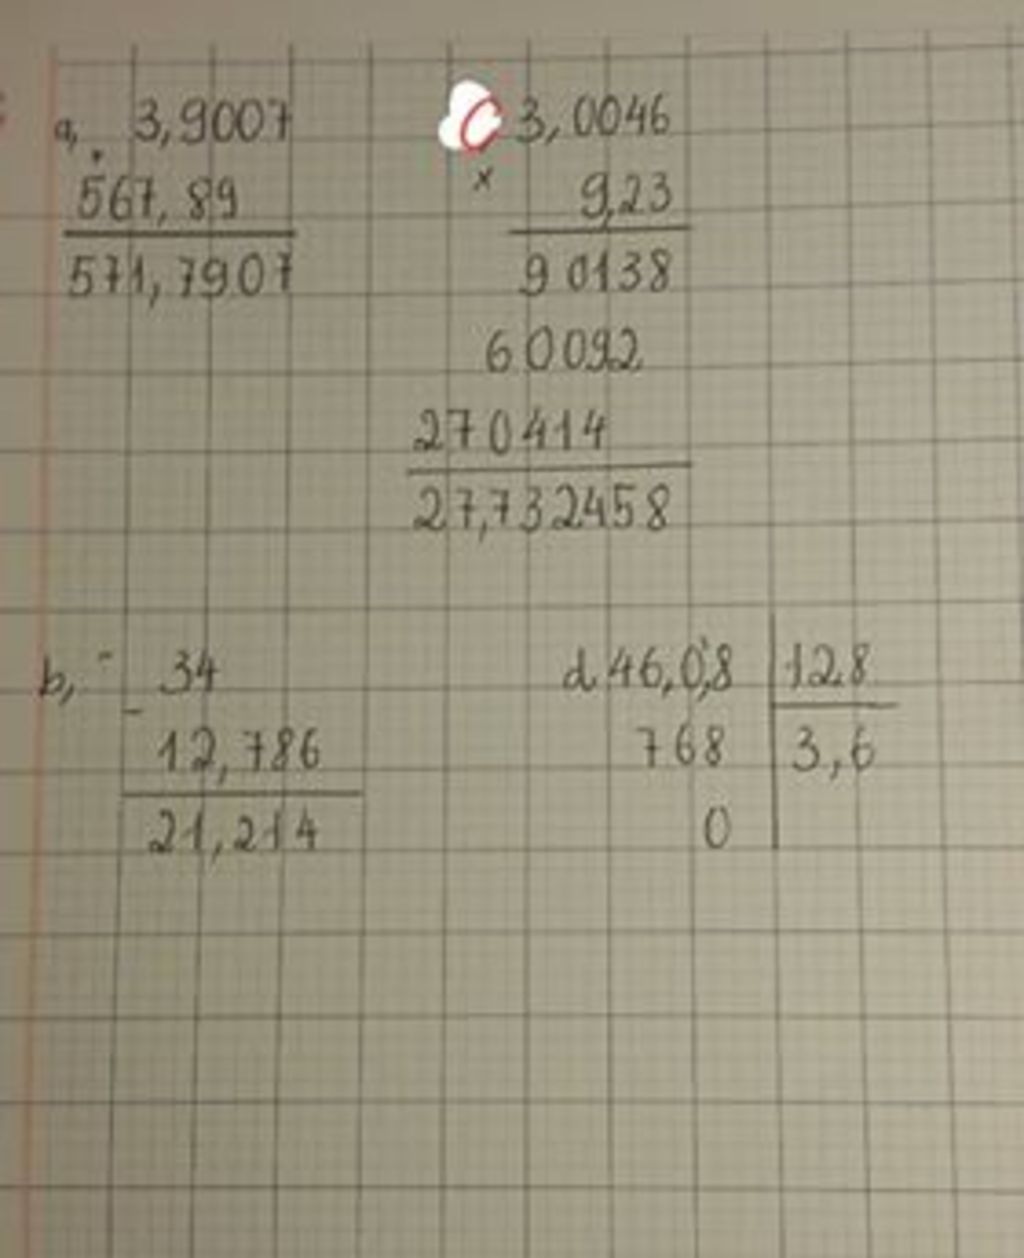 a, 3,9007
+
567,89
571,7907
c 3,0046
x
9,23
90138
60092
270414
27,732458
b, - 34
-
12,786
21,214
d 46,0,8 | 12,8
768 | 3,6
0